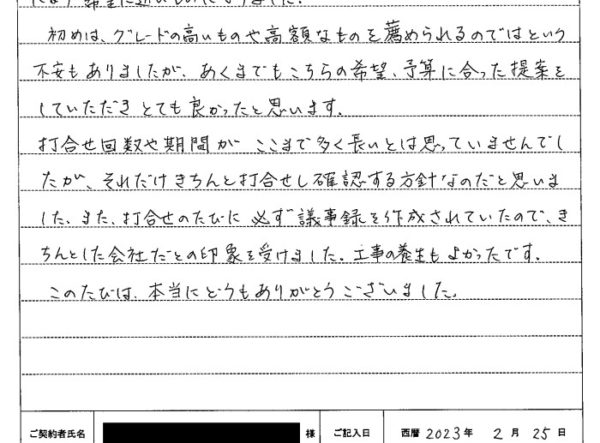 希望に近いものになりました.
初めは、グレードの高いものや高額なものを薦められるのではという
不安もありましたが、あくまでもこちらの希望、予算に合った提案を
していただき とても良かったと思います.
打合せ回数や期間が ここまで多く長いとは思っていませんでし
たが、それだけきちんと打合せし確認する方針なのだと思いま
した. また、打合せのたびに 必ず議事録を作成されていたので、き
ちんとした会社だとの印象を受けました. 工事の養生もよかったです.
このたびは、本当にどうもありがとうございました.
ご契約者氏名 様 ご記入日 西暦 2023年 2月 25日